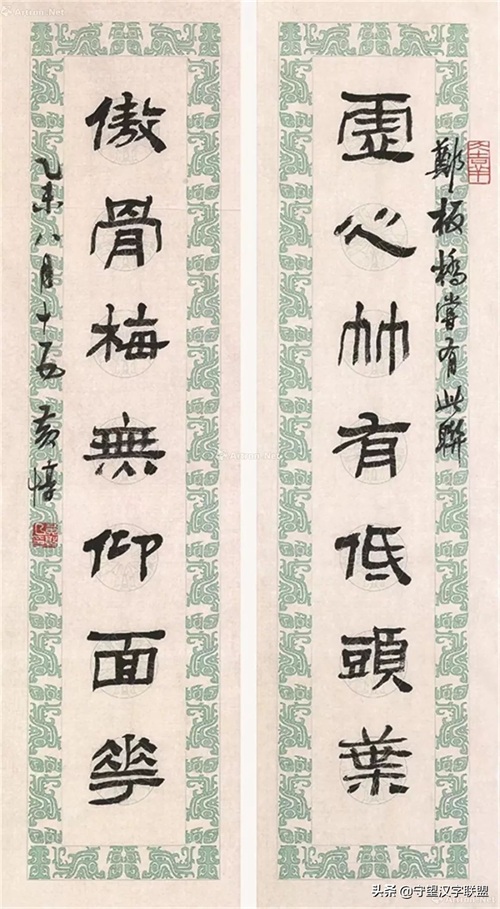 鄭板橋嘗有此聯
虛心竹有低頭葉
傲骨梅無仰面花
乙未八月十五 黄惇
头条 @守望汉字联盟